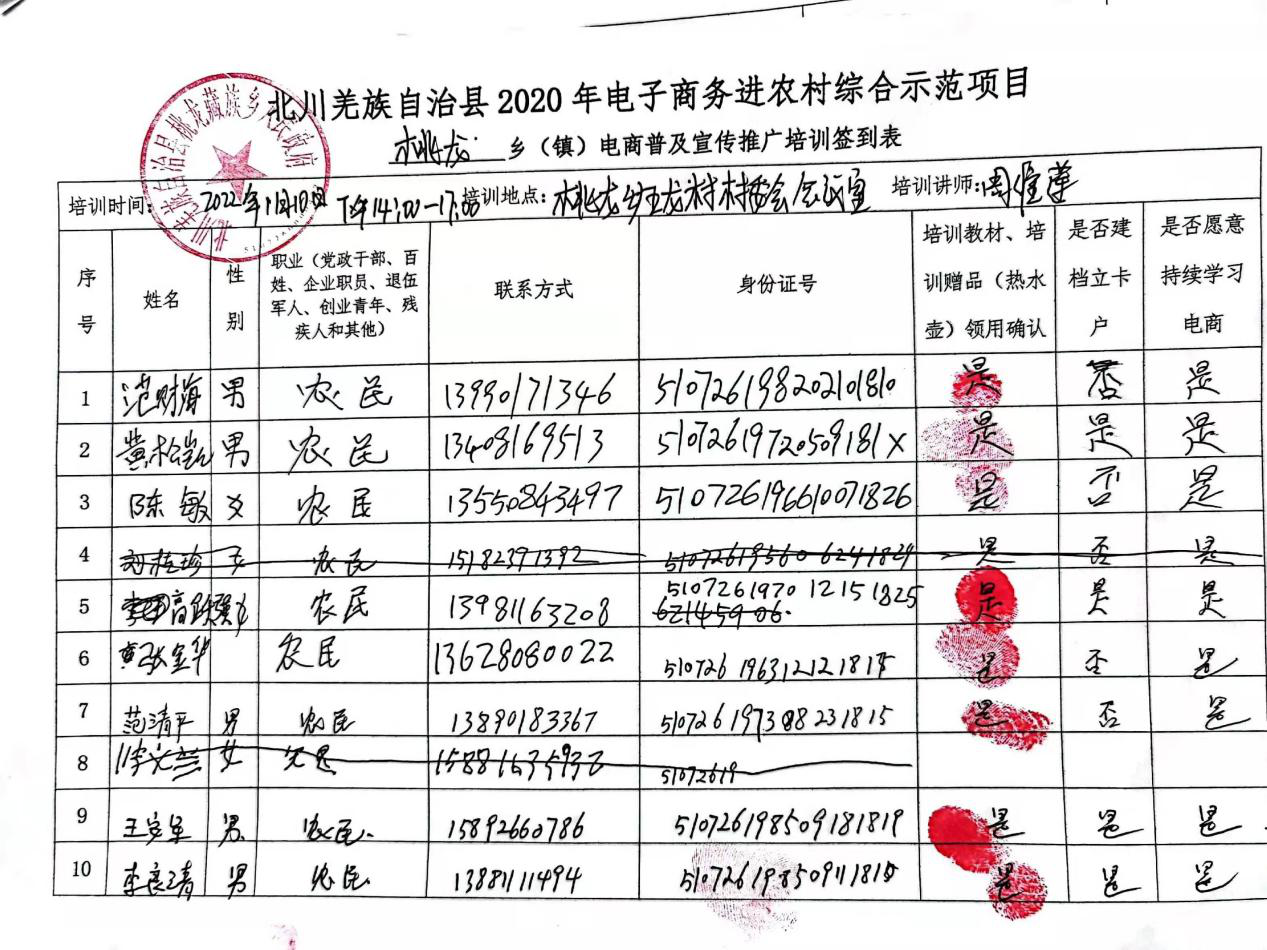 北川羌族自治县 2020 年电子商务进农村综合示范项目
桃龙 乡（镇）电商普及宣传推广培训签到表
培训时间： 2022年1月10日 下午14:00-17:00 培训地点： 桃龙乡 龙村村委会会议室 培训讲师: 周 莲
序号 姓名 性别 职业（党政干部、百姓、企业职员、退伍军人、创业青年、残疾人和其他） 联系方式 身份证号 培训教材、培训赠品（热水壶）领用确认 是否建档立卡户 是否愿意持续学习电商
1 范财海 男 农民 13990171346 510726198202101810 是 否 是
2 黄松凯 男 农民 13408169513 51072619720509181X 是 是 是
3 陈敏 女 农民 13550843497 510726196610071826 是 否 是
4 女 农民 15182391392 是 否 是
5 农民 13981163208 510726197012151825 是 是 是
6 金华 农民 13628080022 是 否 是
7 范清平 男 农民 13890183367 是 否 是
8 女 农民 51072619
9 王 军 男 农民. 15892660786 510726198509181819 是 是 是
10 李 清 男 农民 13881111494 是 是 是